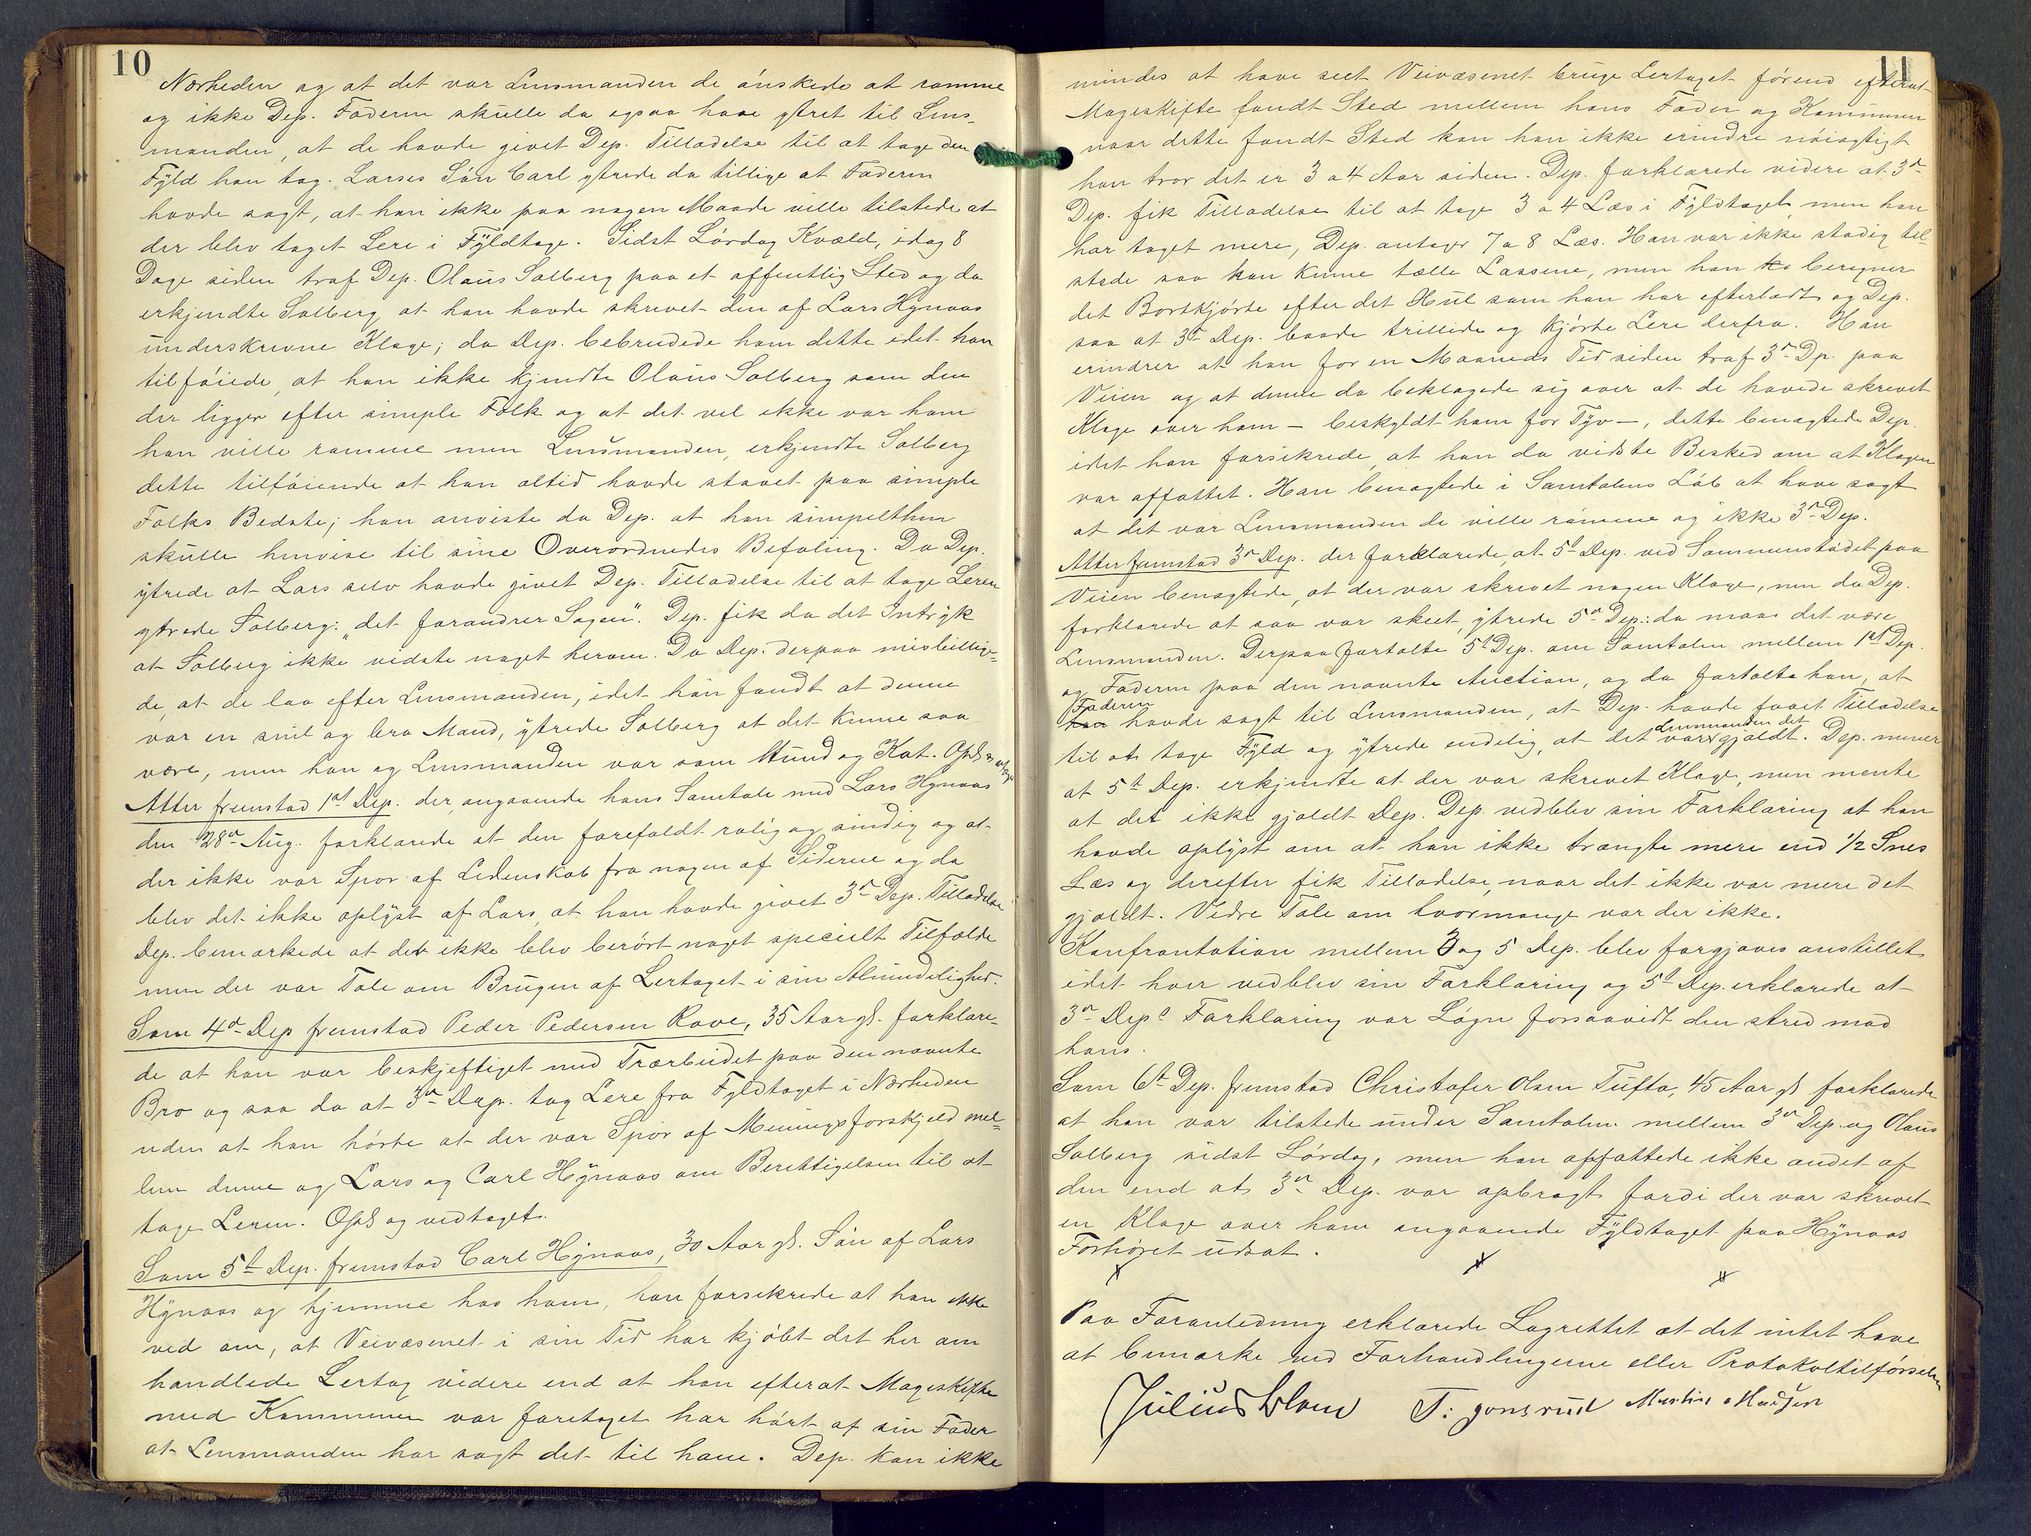 10
Nærheden og at det var Lensmanden de ønskede at ramme
og ikke Dep. Faderen skulle da ogsaa have ytret til Lens-
manden, at de havde givet Dep. Tilladelse til at tage den
Fyld han tog. Larses Søn Carl ytrede da tillige at Faderen
havde sagt, at han ikke paa nogen Maade ville tilstede at
der blev taget Lere i Fyldtage. Sidst Lørdag Kvæld, idag 8
Dage siden traf Dep. Olaus Solberg paa et offentlig Sted og da
erkjendte Solberg at han havde skrevet den af Lars Hynaas
underskrevne Klage; da Dep. bebreidede ham dette idet han
tilføiede, at han ikke kjendte Olaus Solberg som den
der ligger efter simple Folk og at det vel ikke var ham
han ville ramme men Lensmanden, erkjendte Solberg
dette tilføiende at han altid havde staaet paa simple
Folks Bedste; han anviste da Dep. at han simpelthen
skulle henvise til sine Overordnedes Befaling. Da Dep.
ytrede at Lars selv havde givet Dep. Tilladelse til at tage Leren
ytrede Solberg: "det forandrer Sagen". Dep. fik da det Intryk
at Solberg ikke vidste noget herom. Da Dep. derpaa misbillige-
de, at de laa efter Lensmanden, idet han fandt at denne
var en snil og bra Mand, ytrede Solberg at det kunne saa
være, men han og Lensmanden var som Hund og Kat. Opl. & vedtaget
Atter fremstod 1st Dep. der angaaende hans Samtale med Lars Hynaas
den 28de Aug. forklarede at den forefaldt rolig og sindig og at
der ikke var Spor af Lidenskab fra nogen af Siderne og da
blev det ikke oplyst af Lars, at han havde givet 3de Dep. Tilladelse
Dep. bemærkede at det ikke blev berørt noget specielt Tilfælde
men der var Tale om Brugen af Lertaget i sin Almindelighed.
Som 4de Dep fremstod Peder Pedersen Rove, 35 Aar gl. forklare-
de at han var beskjeftiget med Træarbeidet paa den nævnte
Bro og saa da at 3de Dep. tog Lere fra Fyldtaget i Nærheden
uden at han hørte at der var Spor af Meningsforskjeld mel-
lem denne og Lars og Carl Hynaas om Berettigelsen til at
tage Leren. Opl. og vedtaget.
Som 5te Dep. fremstod Carl Hynaas, 30 Aar gl. Søn af Lars
Hynaas og hjemme hos ham, han forsikrede at han ikke
ved om, at Veivæsenet i sin Tid har kjøbt det her om
handlede Lertag videre end at han efterat Mageskifte
med Kommunen var foretaget har hørt af sin Fader
at Lensmanden har sagt det til ham. Dep. kan ikke
11
mindes at have seet Veivæsenet bruge Lertaget førend efterat
Mageskifte fandt Sted mellem hans Fader og Kommunen
naar dette fandt Sted kan han ikke erindre nøiagtigt
han tror det er 3 a 4 Aar siden. Dep. forklarede videre at 3de
Dep. fik Tilladelse til at tage 3 a 4 Læs i Fyldtaget, men han
har taget mere, Dep. antager 7 a 8 Læs. Han var ikke stadig til
stede saa han kunne tælle Læssene, men han beregner
det Bortkjørte efter det Hul som han har efterladt og Dep.
saa at 3de Dep. baade trillede og kjørte Lere derfra. Han
erindrer at han for en Maaneds Tid siden traf 3de Dp. paa
Veien og at denne da beklagede sig over at de havde skrevet
Klage over ham – beskyldt ham for Tyv –, dette benægtede Dep.
idet han forsikrede, at han da vidste Besked om at Klagen
var affattet. Han benægtede i Samtalens Løb at have sagt
at det var Lensmanden de ville ramme og ikke 3de Dep.
Atter fremstod 3de Dep. der forklarede, at 5te Dep. ved Sammenstødet paa
Veien benægtede, at der var skrevet nogen Klage, men da Dep.
forklarede at saa var skeet, ytrede 5te Dep.: da maa det være
Lensmanden. Derpaa fortalte 5te Dep. om Samtalen mellem 1st Dep.
og Faderen paa den nævnte Auction, og da fortalte han, at
Faderen havde sagt til Lensmanden, at Dep. havde faaet Tilladelse
til at tage Fyld og ytrede endelig, at det var Lensmanden det gjaldt. Dep. mener
at 5te Dep. erkjendte at der var skrevet Klage, men mente
at det ikke gjaldt Dep. Dep. vedblev sin Forklaring at han
havde oplyst om at han ikke trængte mere end 1/2 Snes
Læs og derefter fik Tilladelse, naar det ikke var mere det
gjaldt. Vidre Tale om hvormange var der ikke.
Konfrontation mellem 3 og 5 Dep. blev forgjæves anstillet
idet hver vedblev sin Forklaring og 5te Dep. erklærede at
3de Deps Forklaring var Løgn forsaavidt den stred mod
hans.
Som 6te Dep. fremstod Christofer Olsen Tufto, 45 Aar gl forklarede
at han var tilstede under Samtalen mellem 3de Dep. og Olaus
Solberg sidst Lørdag, men han opfattede ikke andet af
den end at 3de Dep. var opbragt fordi der var skrevet
en Klage over ham angaaende Fyldtaget paa Hynaas
Forhøret udsat.
Paa Foranledning erklærede Lagrettet at det intet have
at bemærke ved Forhandlingerne eller Protokoltilførselen
Julius Blom T: Jonsrud Martin Madsen